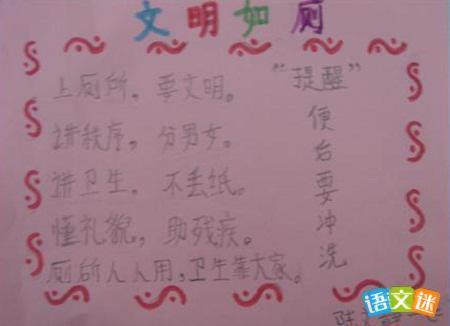 文明如厕
上厕所，要文明。
讲秩序，分男女。
讲卫生，不丢纸。
懂礼貌，助残疾。
厕所人人用，卫生靠大家。
“提醒”
便后要冲洗
陆
语文迷